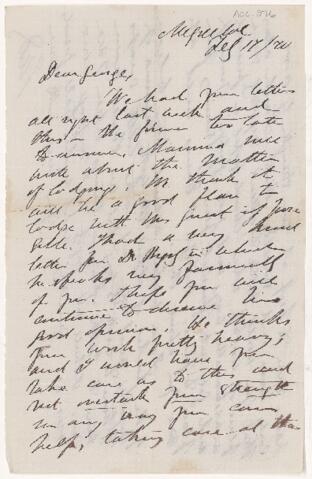 ACC. 876
Feby 17/70
Dear George,
We had your letter
all right last week and
this - the former too late
to answer. Mamma will
write about the matter
of lodging. We think it
will be a good plan to
lodge with this priest if poss
ible. I had a very kind
letter from Dr. in which
he speaks very favourably
of you. I hope you will
continue to deserve his
good opinion. He thinks
your work pretty heavy,
and I would have you
take care as to this and
not overtask your strength
in any way you can
help, taking care at the